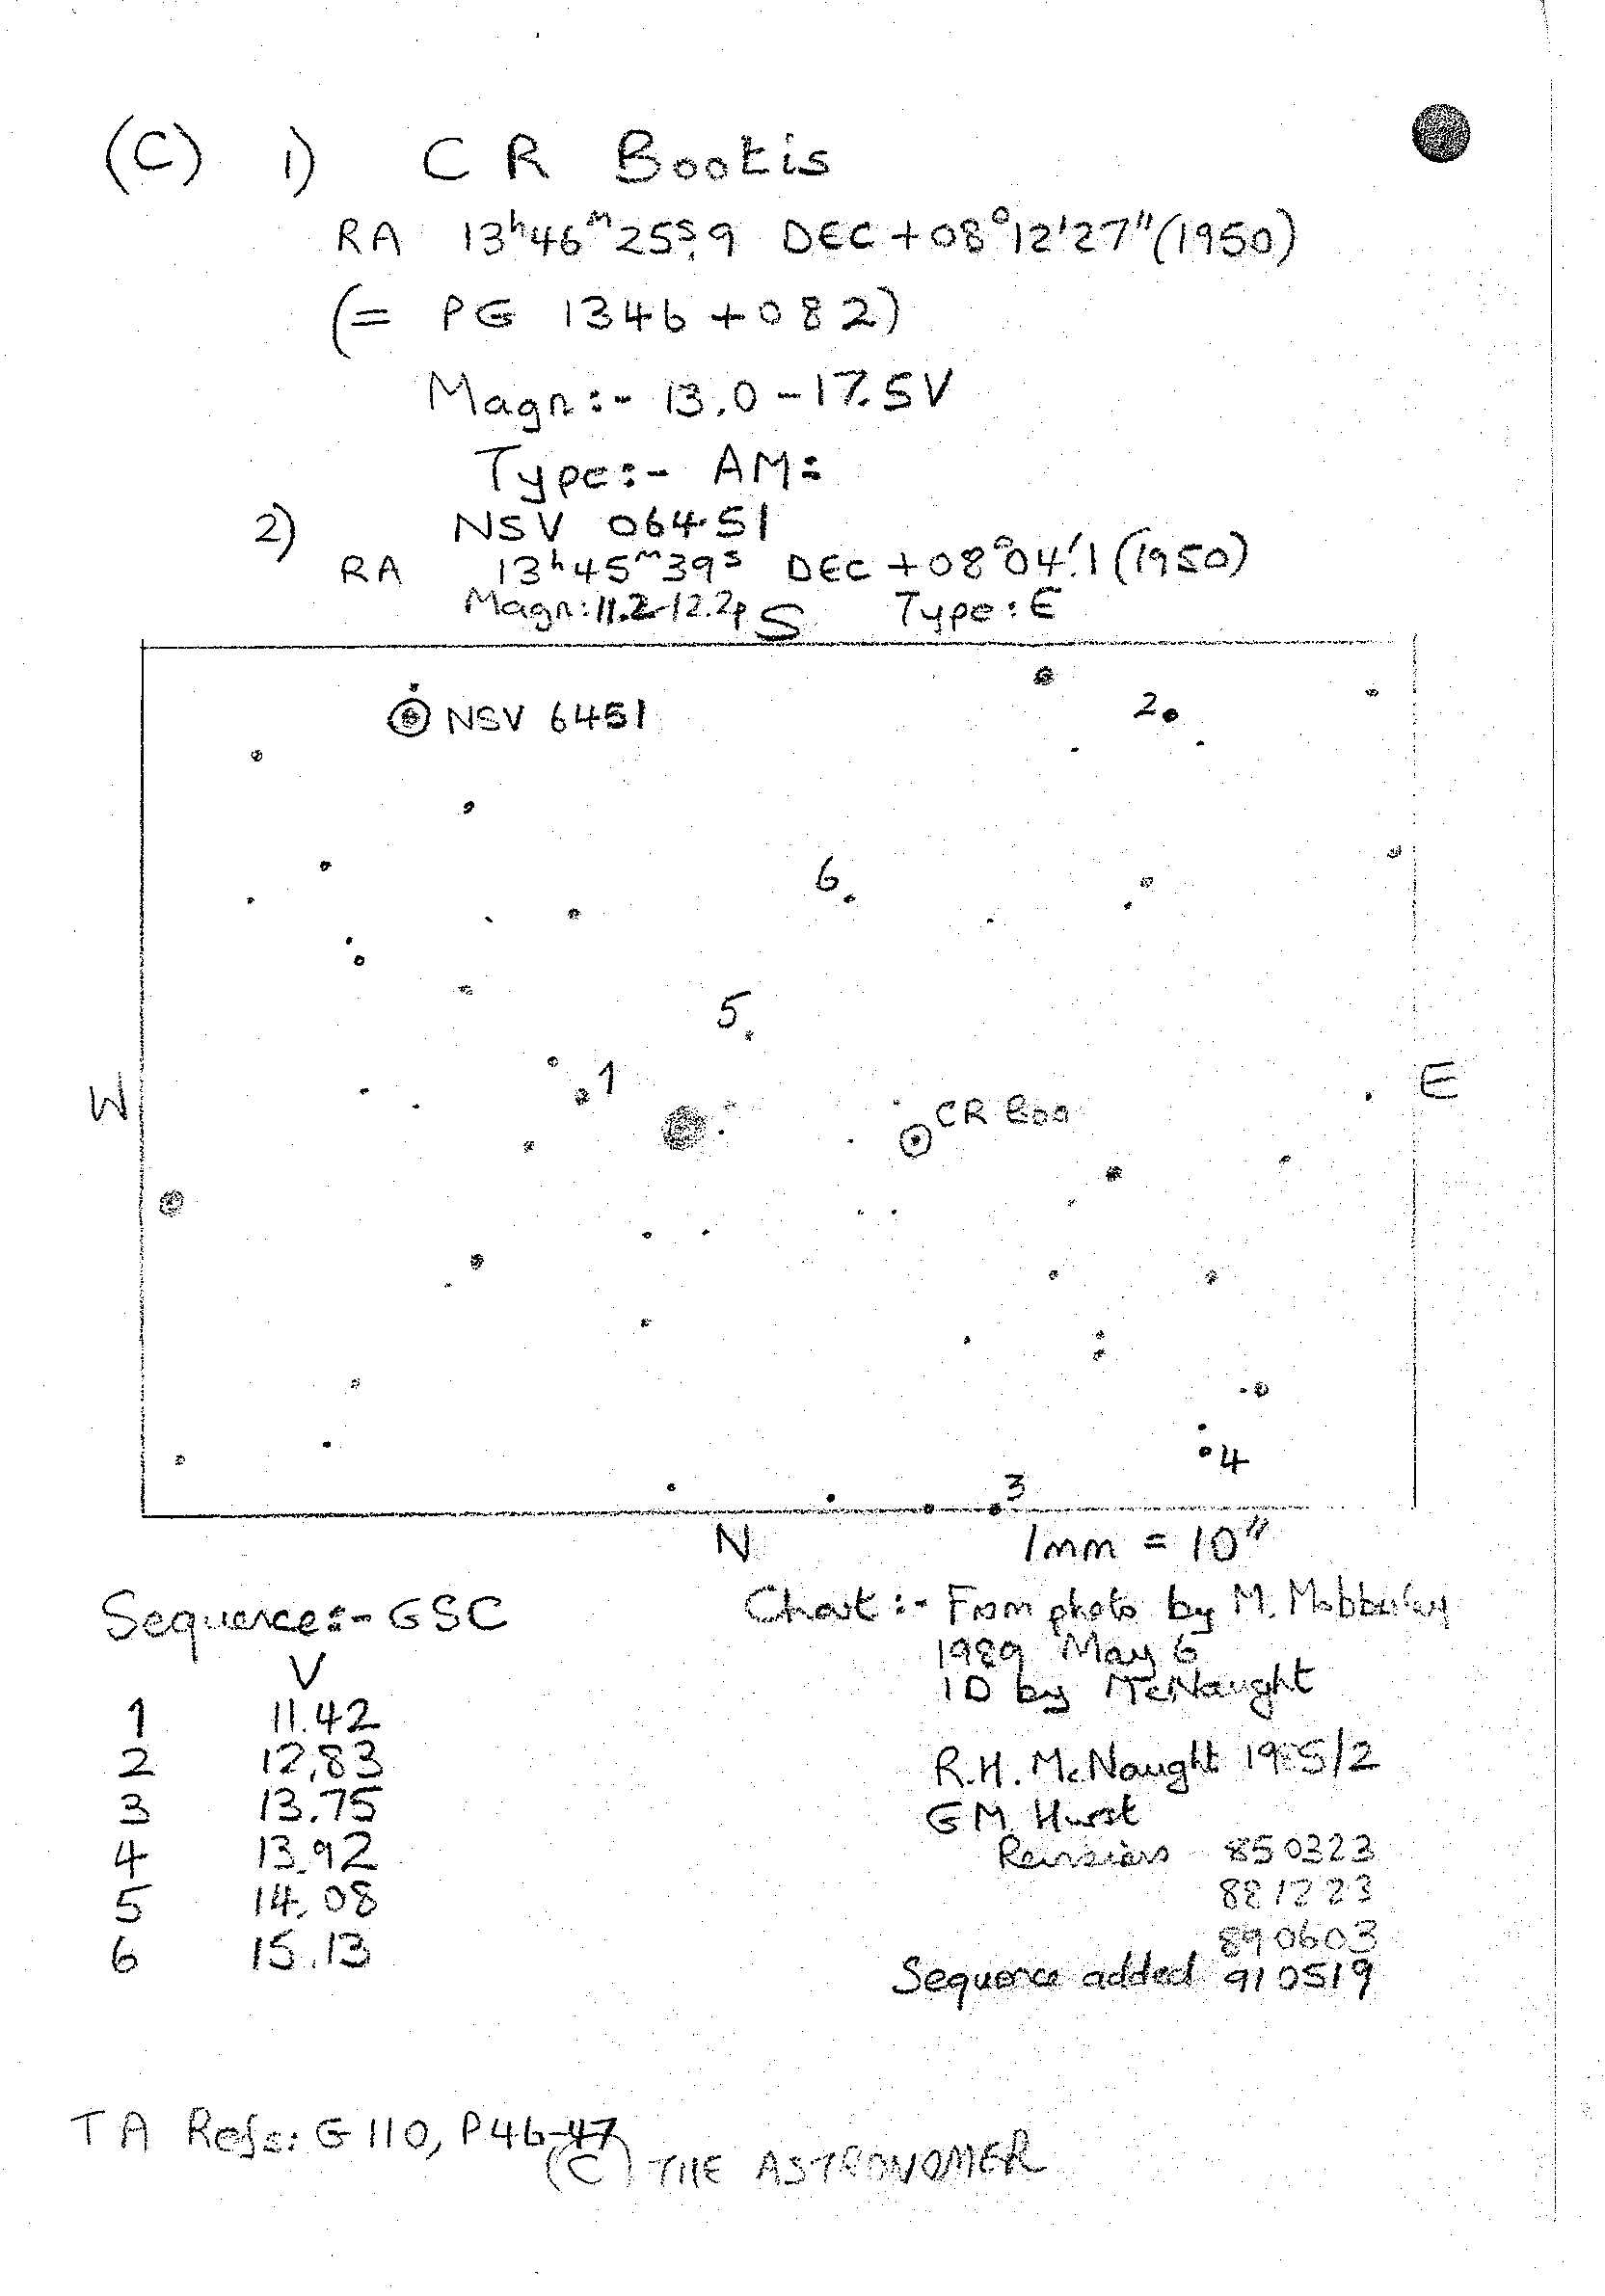 (C) 1) CR Bootis
RA 13ʰ46ᵐ25ˢ.9 DEC +08°12'27"(1950)
(= PG 1346+082)
Magn:- 13.0-17.5V
Type:- AM:
2) NSV 06451
RA 13ʰ45ᵐ39ˢ DEC +08°04'.1 (1950)
Magn: 11.2-12.2p Type: E
S
NSV 6451
2
6
5
1
W
E
CR Boo
4
3
N
1mm = 10"
Sequence:- GSC
V
1 11.42
2 12.83
3 13.75
4 13.92
5 14.08
6 15.13
Chart:- From photo by M. Mobberley
1989 May 6
ID by McNaught
R.H. McNaught 1985/2
GM Hurst
Revisions 850323
881223
890603
Sequence added 910519
TA Refs: G110, P46-47
(C) THE ASTRONOMER